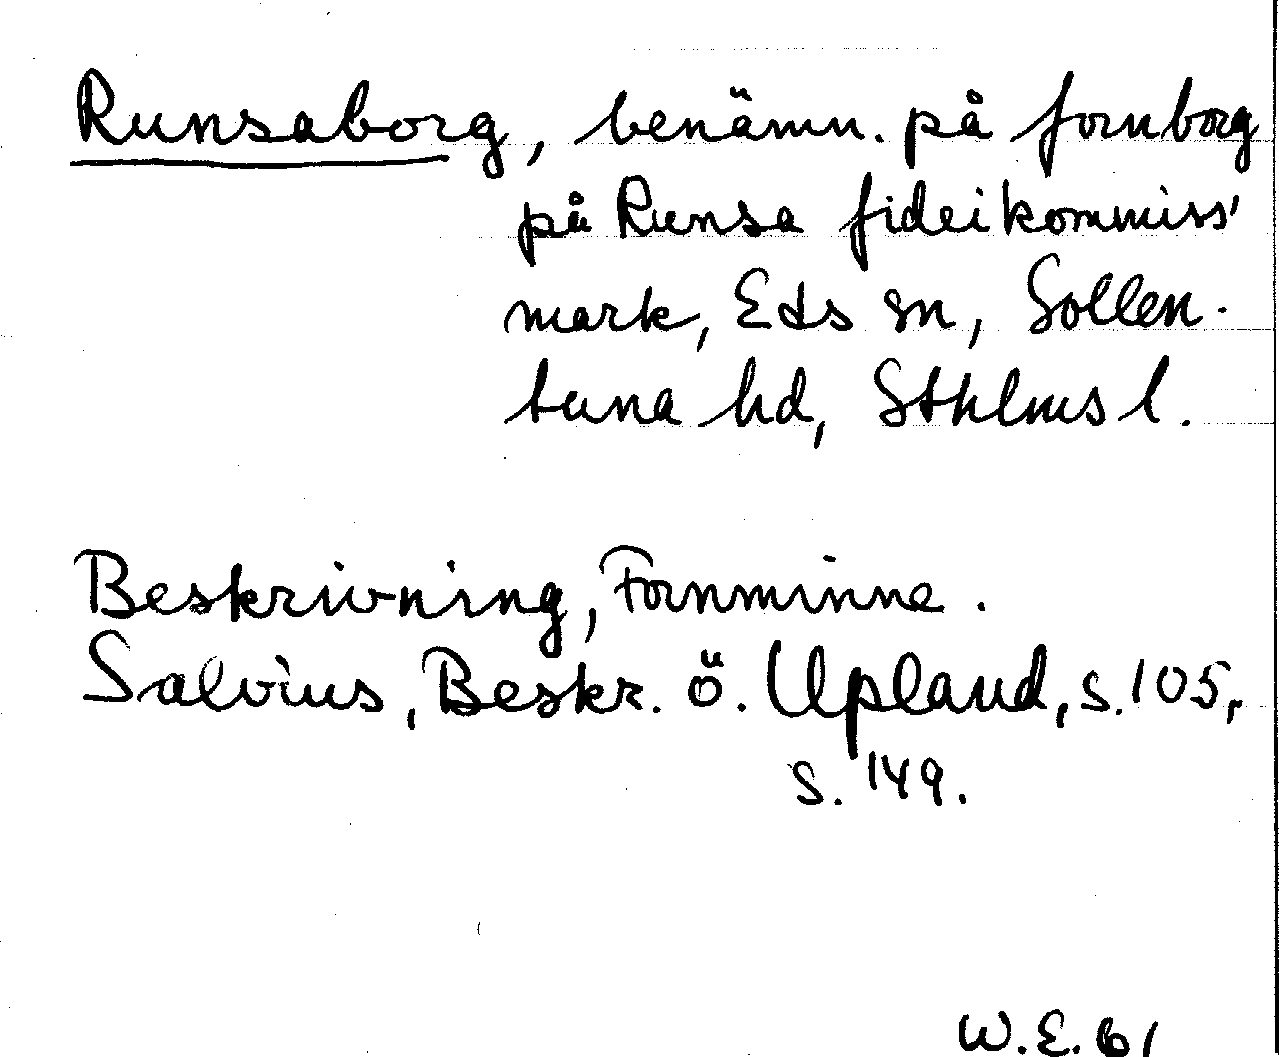 Runsaborg, benämn. på fornborg
på Runsa fideikommiss'
mark, Eds sn, Sollen-
tuna hd, Sthlms l.
Beskrivning, Fornminne.
Salvius, Beskr. ö. Upland, s. 105,
s. 149.
W.E. 61